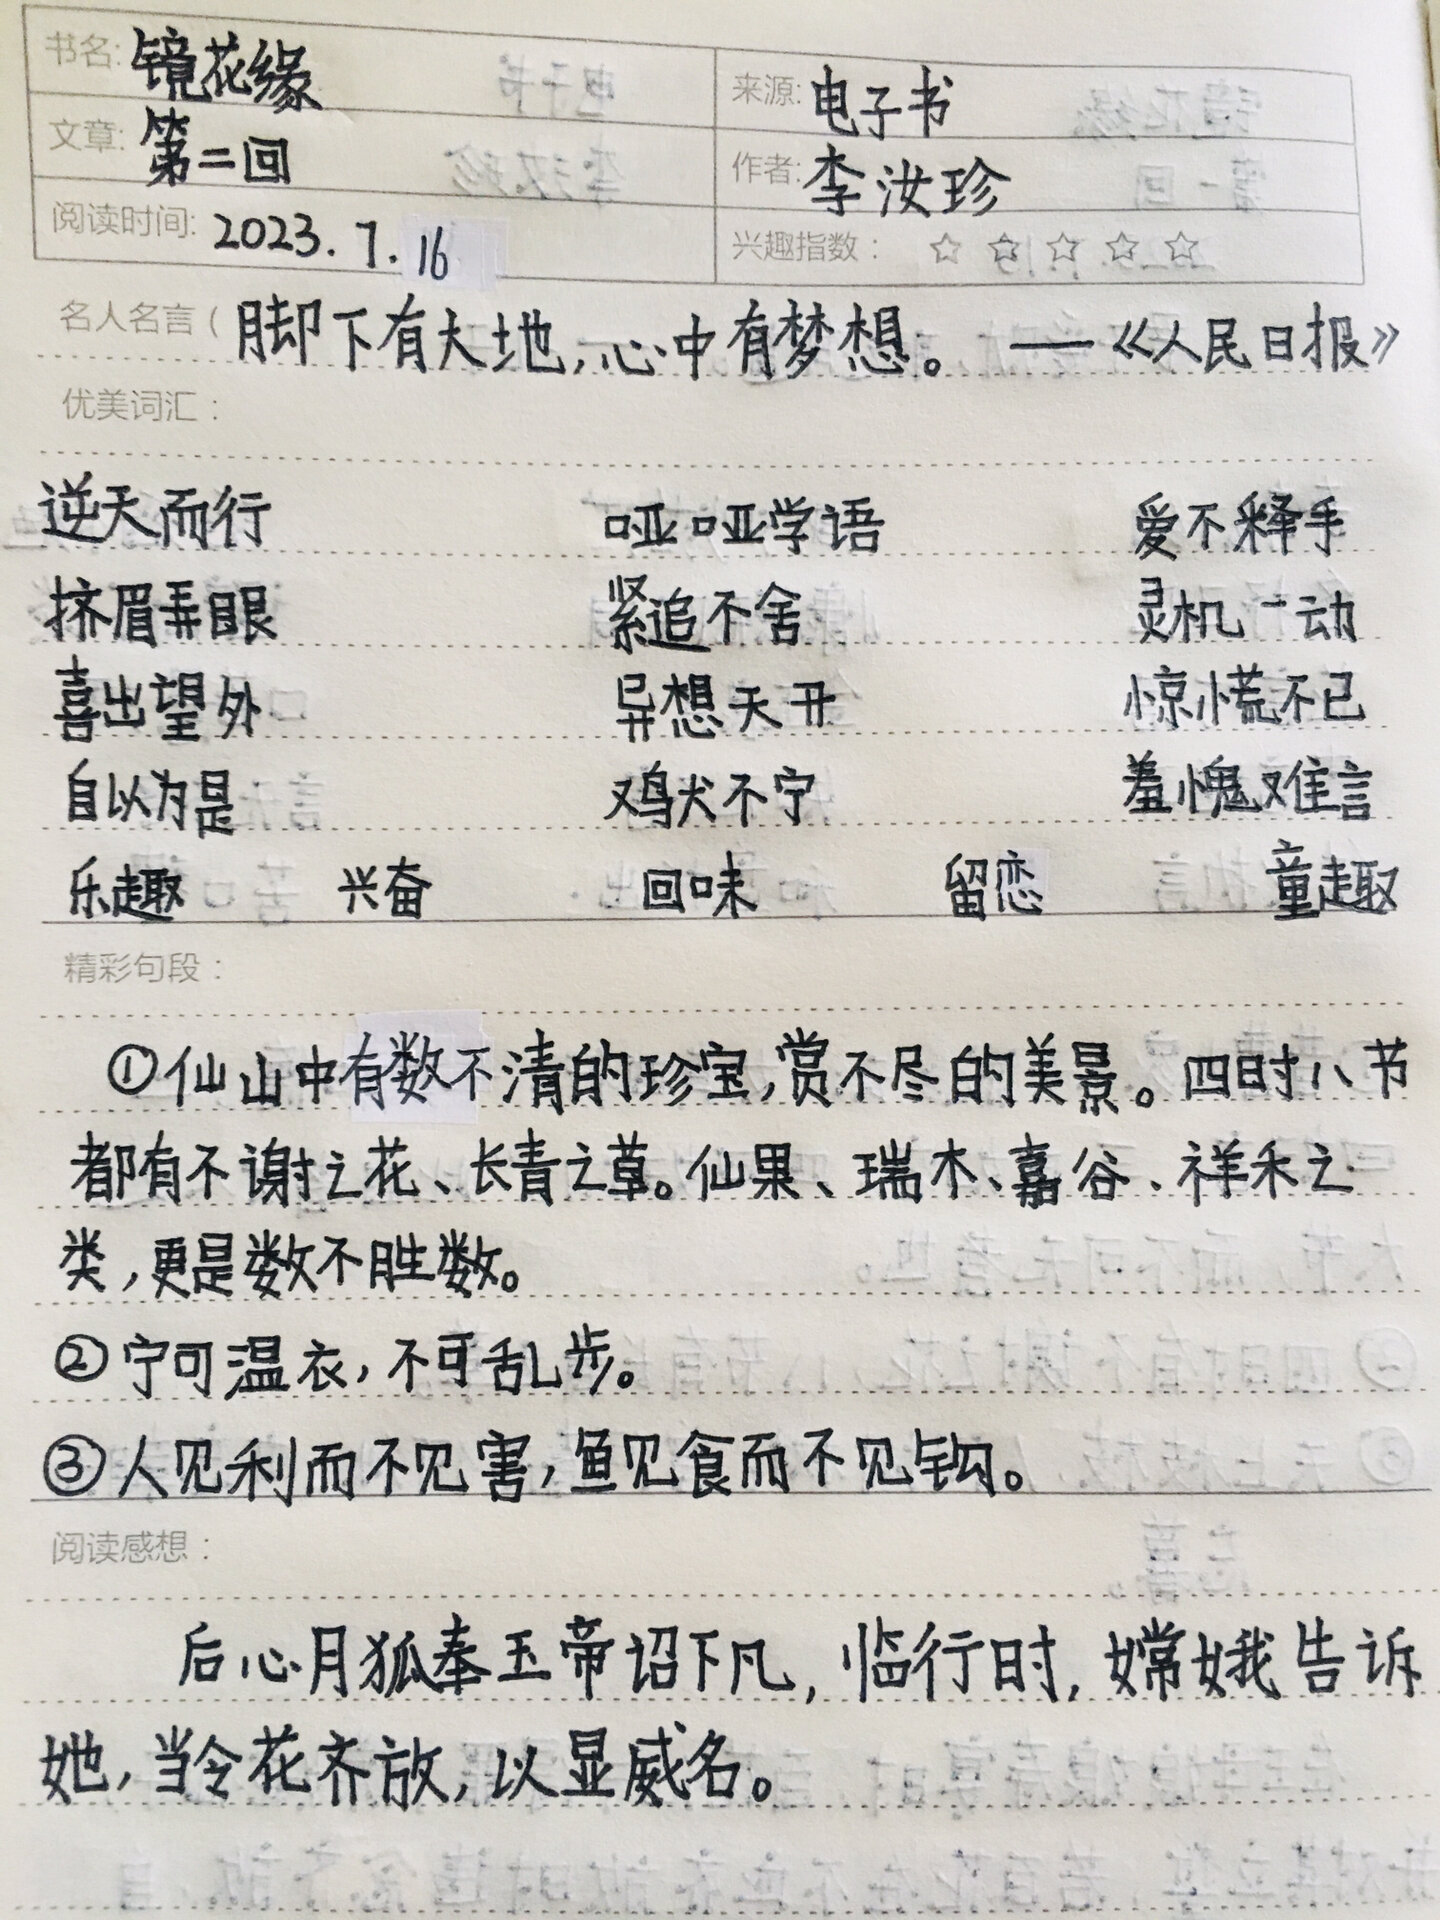 书名: 镜花缘 来源: 电子书
文章: 第二回 作者: 李汝珍
阅读时间: 2023.7.16 兴趣指数： ☆ ☆ ☆ ☆ ☆
名人名言( 脚下有大地,心中有梦想。——《人民日报》
优美词汇：
逆天而行 哑哑学语 爱不释手
挤眉弄眼 紧追不舍 灵机一动
喜出望外 异想天开 惊慌不已
自以为是 鸡犬不宁 羞愧难言
乐趣 兴奋 回味 留恋 童趣
精彩句段：
①仙山中有数不清的珍宝,赏不尽的美景。四时八节
都有不谢之花、长青之草。仙果、瑞木、嘉谷、祥禾之
类,更是数不胜数。
②宁可温衣,不可乱步。
③人见利而不见害,鱼见食而不见钩。
阅读感想：
后心月狐奉玉帝诏下凡,临行时,嫦娥告诉
她,当令花齐放,以显威名。